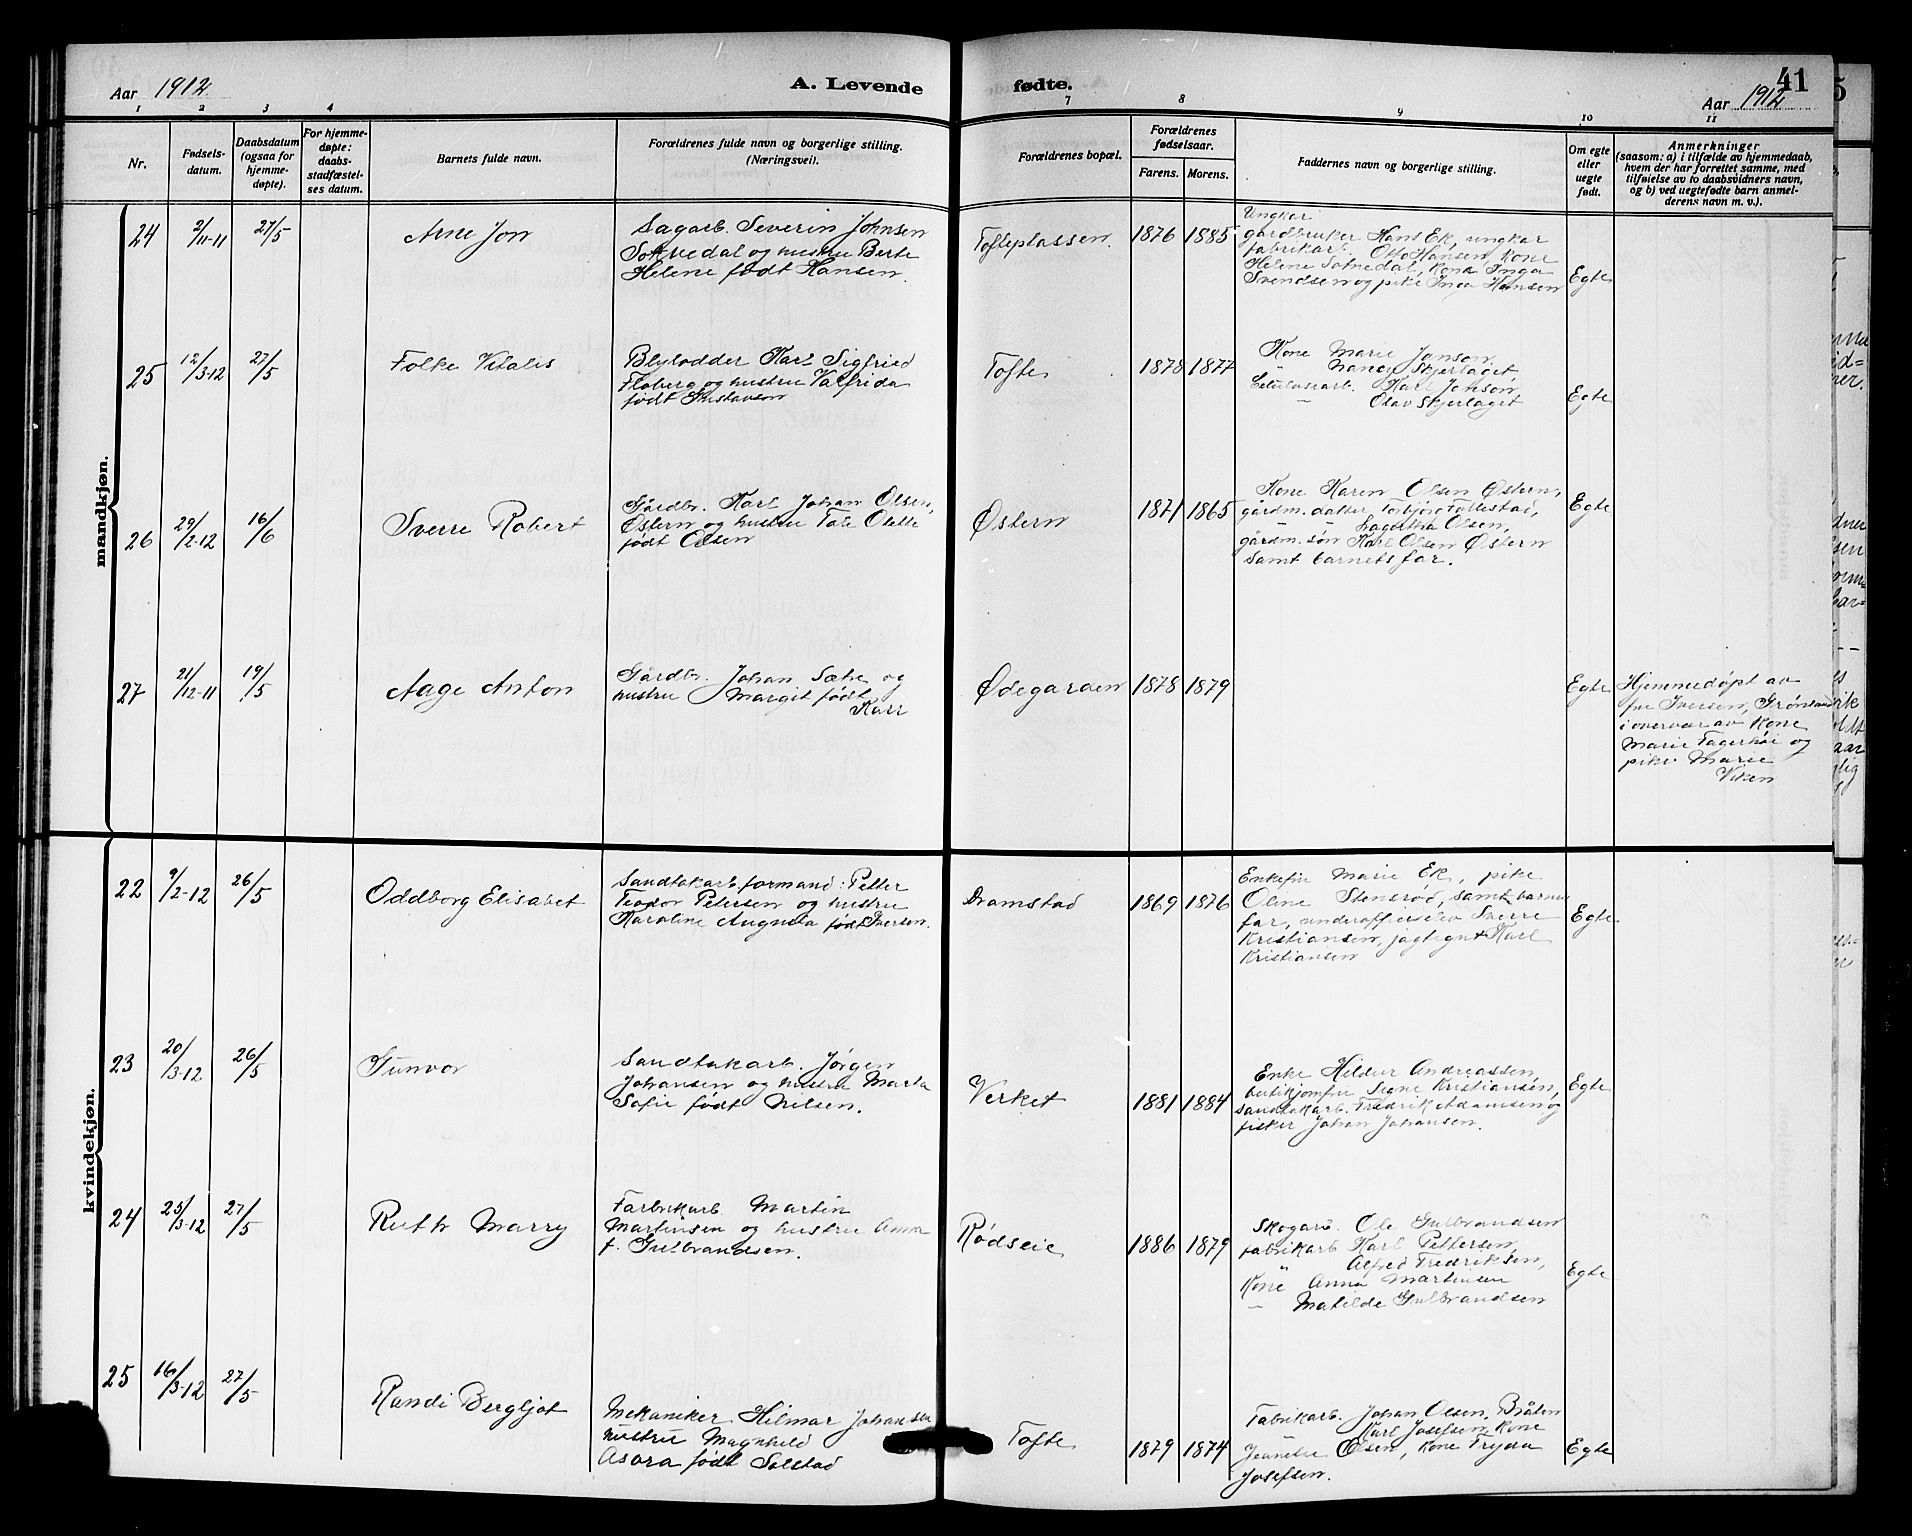 Aar 1912
A. Levende fødte.
41
Aar 1912
1 2 3 4 7 8 9 10 11
Nr.
Fødsels-
datum.
Daabsdatum
(ogsaa for
hjemme-
døpte).
For hjemme-
døpte:
daabs-
stadfæstel-
ses datum.
Barnets fulde navn.
Forældrenes fulde navn og borgerlige stilling.
(Næringsvei).
Forældrenes bopæl.
Forældrenes
fødselsaar.
Farens. Morens.
Faddernes navn og borgerlige stilling.
Om egte
eller
uegte
født.
Anmerkninger
(saasom: a) i tilfælde av hjemmedaab,
hvem der har forrettet samme, med
tilføielse av to daabsvidners navn,
og b) ved uegtefødte barn anmel-
derens navn m. v.).
mandkjøn.
24 2/11-11 27/5
Arne Jon
Sagarb. Severin Johnsen
Solnedal og hustru Berte
Helene født Hansen.
Tofteplassen.
1876 1885
Ungkar
gårdbruker Hans Ek, ungkar
fabrikar. Otto Hansen, kone
Helene Solnedal, kone Inga
Svendsen og pike Inga Hansen
Egte
25 12/3-12 27/5
Folke Vitalis
Blylodder Karl Sigfried
Floberg og hustru Valfrida
født Gustavson
Tofte
1878 1877
Kone Marie Jonson
" Nancy Skjerlaget
Celulosearb. Karl Jonsøn
" Olav Skjerlaget
Egte
26 29/2-12 16/6
Sverre Robert
Gårdbr. Karl Johan Olsen,
Østern og hustru Tale Olette
født Olsen
Østern
1871 1865
Kone Karen Olsen Østern,
gårdm. datter Torbjørg Follestad,
" " Lagertha Olsen,
gårdm. søn Karl Olsen Østern
samt barnets far.
Egte
27 21/12-11 19/5
Aage Anton
Gårdbr. Johan Sætre og
hustru Margit født
Karr
Ødegården
1878 1879
Egte
Hjemmedøpt av
fru Iversen, Grønsand
i overvær av kone
Marie Fagerhøi og
pike Marie
Viken
kvindekjøn.
22 9/2-12 26/5
Oddborg Elisabet
Sandtakarb. formand: Petter
Teodor Petersen og hustru
Karoline Augusta født Iversen.
Dramstad
1869 1876
Enkefru Marie Ek, pike
Oline Stensrød, samt barnets
far, underofficerselev Sverre
Kristiansen, jagtegnt Karl
Kristiansen
Egte
23 20/3-12 26/5
Gunvor
Sandtakarb. Jørgen
Johansen og hustru Marta
Sofie født Nilsen.
Verket
1881 1884
Enke Hildur Andreassen,
butikjomfru Signe Kristiansen,
sandtakarb. Fredrik Adamsen og
fisker Johan Johansen.
Egte
24 25/3-12 27/5
Ruth Marry
Fabrikarb. Martin
Martinsen og hustru Anna
f. Gulbrandsen.
Rødseie
1886 1879
Skogarb. Ole Gulbrandsen
fabrikarb. Karl Pettersen,
" Alfred Fredriksen,
Kone Anna Martinsen
" Matilde Gulbrandsen
Egte
25 16/3-12 27/5
Randi Bergljot
Mekaniker Hilmar Johansen
hustru Magnhild
Asora født Solstad
Tofte
1879 1874
Fabrikarb. Johan Olsen, Bråten
" Karl Josefsen, kone
Jeanette Olsen, kone Fryda
Josefsen.
Egte